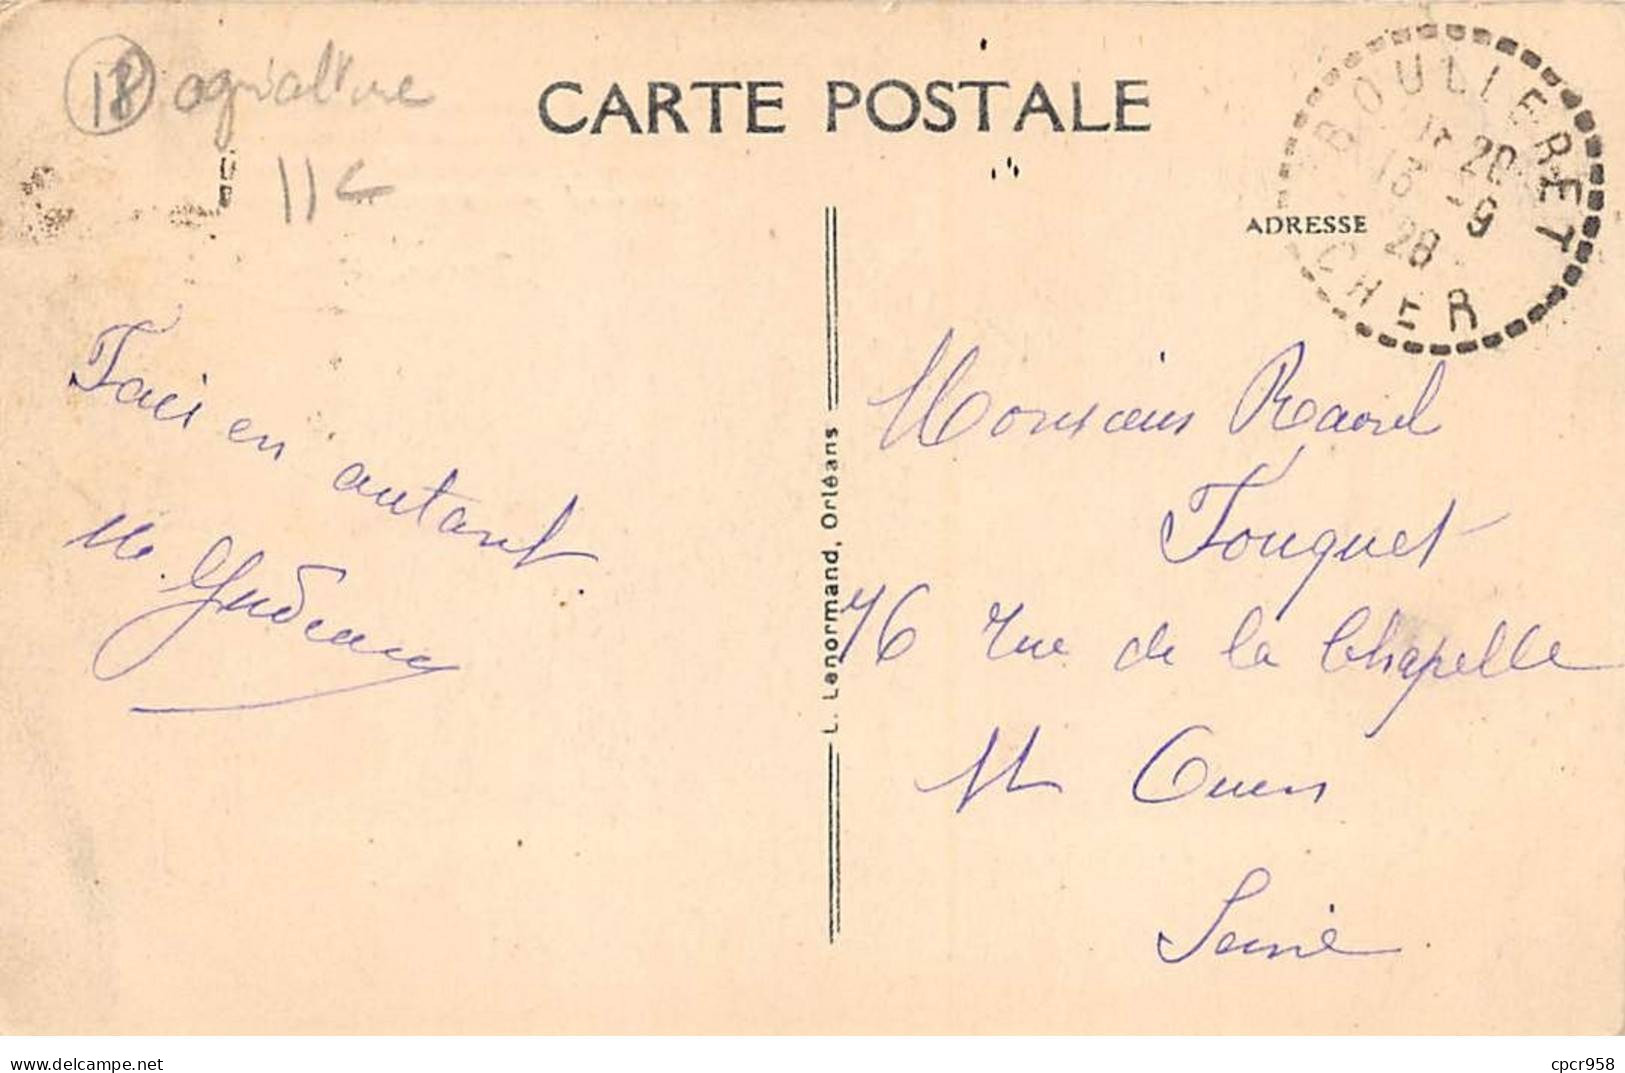 18 agriculture
CARTE POSTALE
11€
BOULLERET
20
13 -9
28
CHER
ADRESSE
Fais en
autant.
M. Guédeau
L. Lenormand, Orléans
Monsieur Raoul
Fouquet
76 Rue de la Chapelle
St Ouen
Seine
delcampe.net
cpcr958